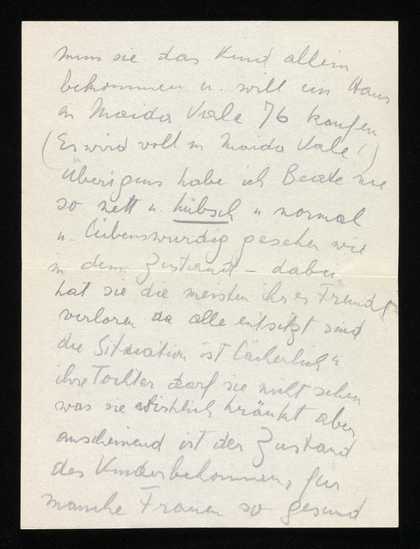 muss sie das Kind allein
bekommen u. will ein Haus
in Maida Vale 76 kaufen
(Es wird voll in Maida Vale!)
Übrigens habe ich Beate nie
so nett u. hübsch u normal
u. liebenswürdig gesehen wie
in dem Zustand – dabei
hat sie die meisten ihrer Freunde
verloren da alle entsetzt sind
die Situation ist lächerlich u
ihre Tochter darf sie nicht sehen
was sie wirklich kränkt aber
anscheinend ist der Zustand
des Kinderbekommens für
manche Frauen so gesund